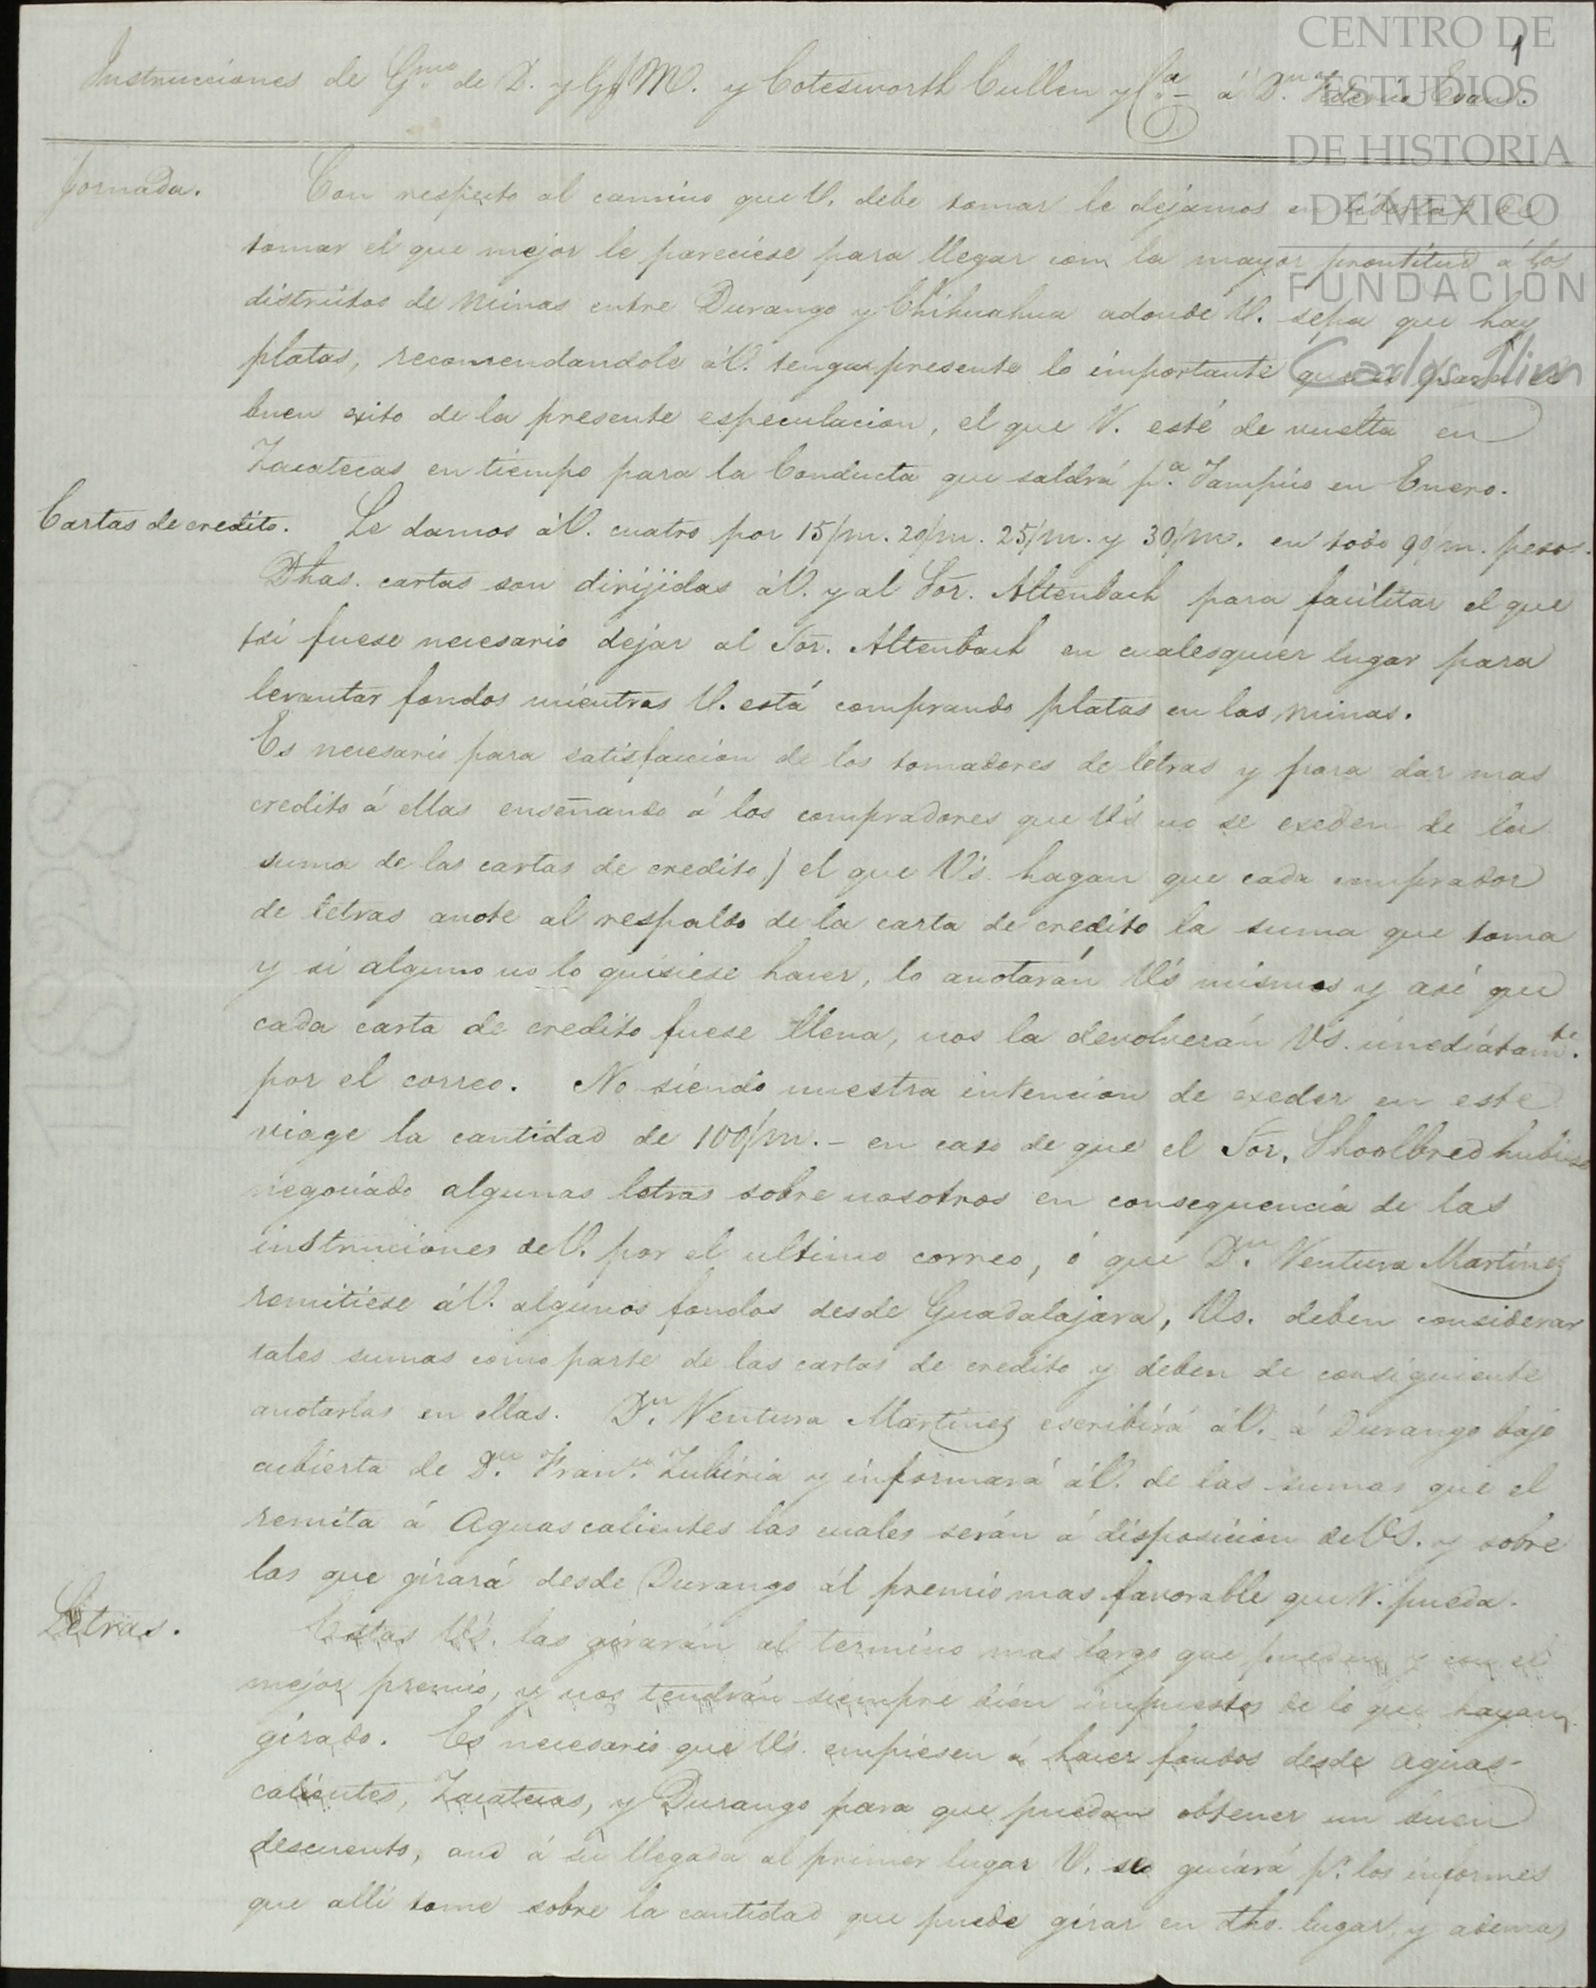 CENTRO DE
ESTUDIOS
DE HISTORIA
DE MEXICO
FUNDACIÓN
Carlos Slim
1
Instrucciones de Gmo. de D. y G M. y Cotesworth Cullen y Ca. á Dn. Federico Evans.
Jornada. Con respecto al camino que V. debe tomar le dejamos en libertad de
tomar el que mejor le pareciese para llegar con la mayor prontitud á los
distritos de Minas entre Durango y Chihuahua adonde V. sepa que hay
platas, recomendandole áV. tenga presente lo importante que es para el
buen exito de la presente especulacion, el que V. esté de vuelta en
Zacatecas en tiempo para la Conducta que saldrá pa. Tampico en Enero.
Cartas de credito. Le damos áV. cuatro por 15/m. 20/m. 25/m. y 30/m. en todo 90/m. pesos.
Dhas. cartas son dirijidas áV. y al Sor. Altenbach para facilitar el que
si fuese necesario dejar al Sor. Altenbach en cualesquier lugar para
levantar fondos mientras V. está comprando platas en las minas.
Es necesario para satisfaccion de los tomadores de letras y para dar mas
credito á ellas enseñando á los compradores que V's no se exeden de la
suma de las cartas de credito,) el que V's. hagan que cada comprador
de letras anote al respaldo de la carta de credito la suma que toma
y si alguno no lo quisiese hacer, lo anotarán V's mismos y asi que
cada carta de credito fuese llena, nos la devolverán V's. imediátamte.
por el correo. No siendo nuestra intencion de exeder en este
viage la cantidad de 100/m. – en caso de que el Sor. Shoolbred hubiese
negociado algunas letras sobre nosotros en consequencia de las
instruciones deV. por el ultimo correo, ó que Dn. Ventura Martinez
remitiese áV. algunos fondos desde Guadalajara, Vs. deben considerar
tales sumas como parte de las cartas de credito y deben de consiguiente
anotarlas en ellas. Dn. Ventura Martinez escribirá áV. á Durango bajo
cubierta de Dn. Franco. Zubiria y informará áV. de las sumas que el
remita á Aguascalientes las cuales serán á disposicion deVS. y sobre
las que girará desde Durango ál premio mas favorable que V. pueda.
Letras. Estas V's. las girarán al termino mas largo que puedan y con el
mejor premio, y nos tendrán siempre bien impuestos de lo que hayan
girado. Es necesario que V's. empiesen á hacer fondos desde Aguas-
calientes, Zacatecas, y Durango para que puedan obtener un buen
descuento, and á su llegada al primer lugar V. se guiará pr. los informes
que alli tome sobre la cantidad que puede girar en dho. lugar, y ademas